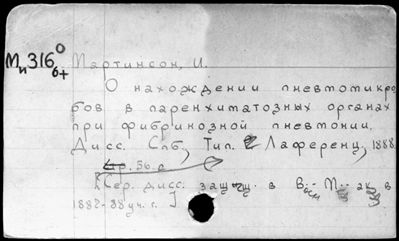 Мн316
Мартинсон, И.
О нахождении пневмомикро-
бов в паренхиматозных органах
при фибринозной пневмонии.
Дисс. Спб, Тип. Лаференц, 1888.
56 с
[Сер. дисс. защищ. в В М ак в
1887-88 уч. г. ]